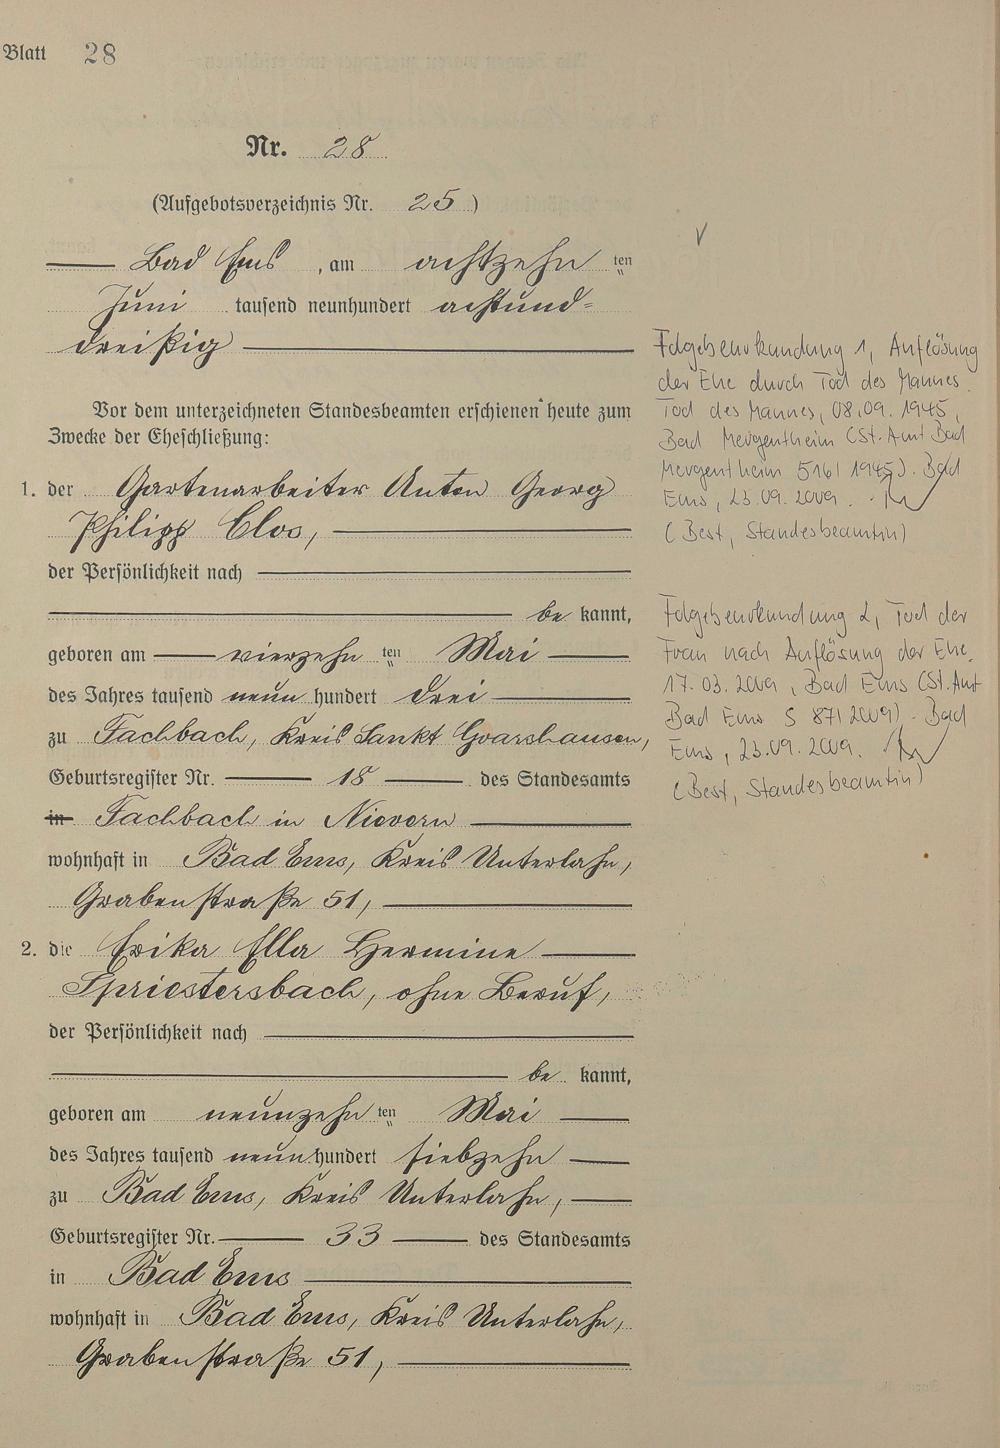 Blatt 28
Nr. 28
(Aufgebotsverzeichnis Nr. 25)
Bad Ems, am achtzehn ten
Juni tausend neunhundert achtund=
dreißig
Vor dem unterzeichneten Standesbeamten erschienen heute zum
Zwecke der Eheschließung:
1. der Gartenarbeiter Anton Georg
Philipp Clos,
der Persönlichkeit nach
be kannt,
geboren am vierzehn ten Mai
des Jahres tausend neun hundert drei
zu Fachbach, Kreis Sankt Goarshausen,
Geburtsregister Nr. 18 des Standesamts
in Fachbach in Nievern
wohnhaft in Bad Ems, Kreis Unterlahn,
Grabenstraße 51,
2. die Erika Ella Hermine
Spriestersbach, ohne Beruf,
der Persönlichkeit nach
be kannt,
geboren am neunzehn ten Mai
des Jahres tausend neun hundert siebzehn
zu Bad Ems, Kreis Unterlahn,
Geburtsregister Nr. 33 des Standesamts
in Bad Ems
wohnhaft in Bad Ems, Kreis Unterlahn,
Grabenstraße 51,
Folgebeurkundung 1, Auflösung
der Ehe durch Tod des Mannes.
Tod des Mannes, 08.09.1945,
Bad Mergentheim (St.Amt Bad
Mergentheim 516/1945). Bad
Ems, 23.09.2009.
(Best, Standesbeamtin)
Folgebeurkundung 2, Tod der
Frau nach Auflösung der Ehe.
17.03.2009, Bad Ems (St.Amt
Bad Ems S 87/2009). Bad
Ems, 23.09.2009.
(Best, Standesbeamtin)